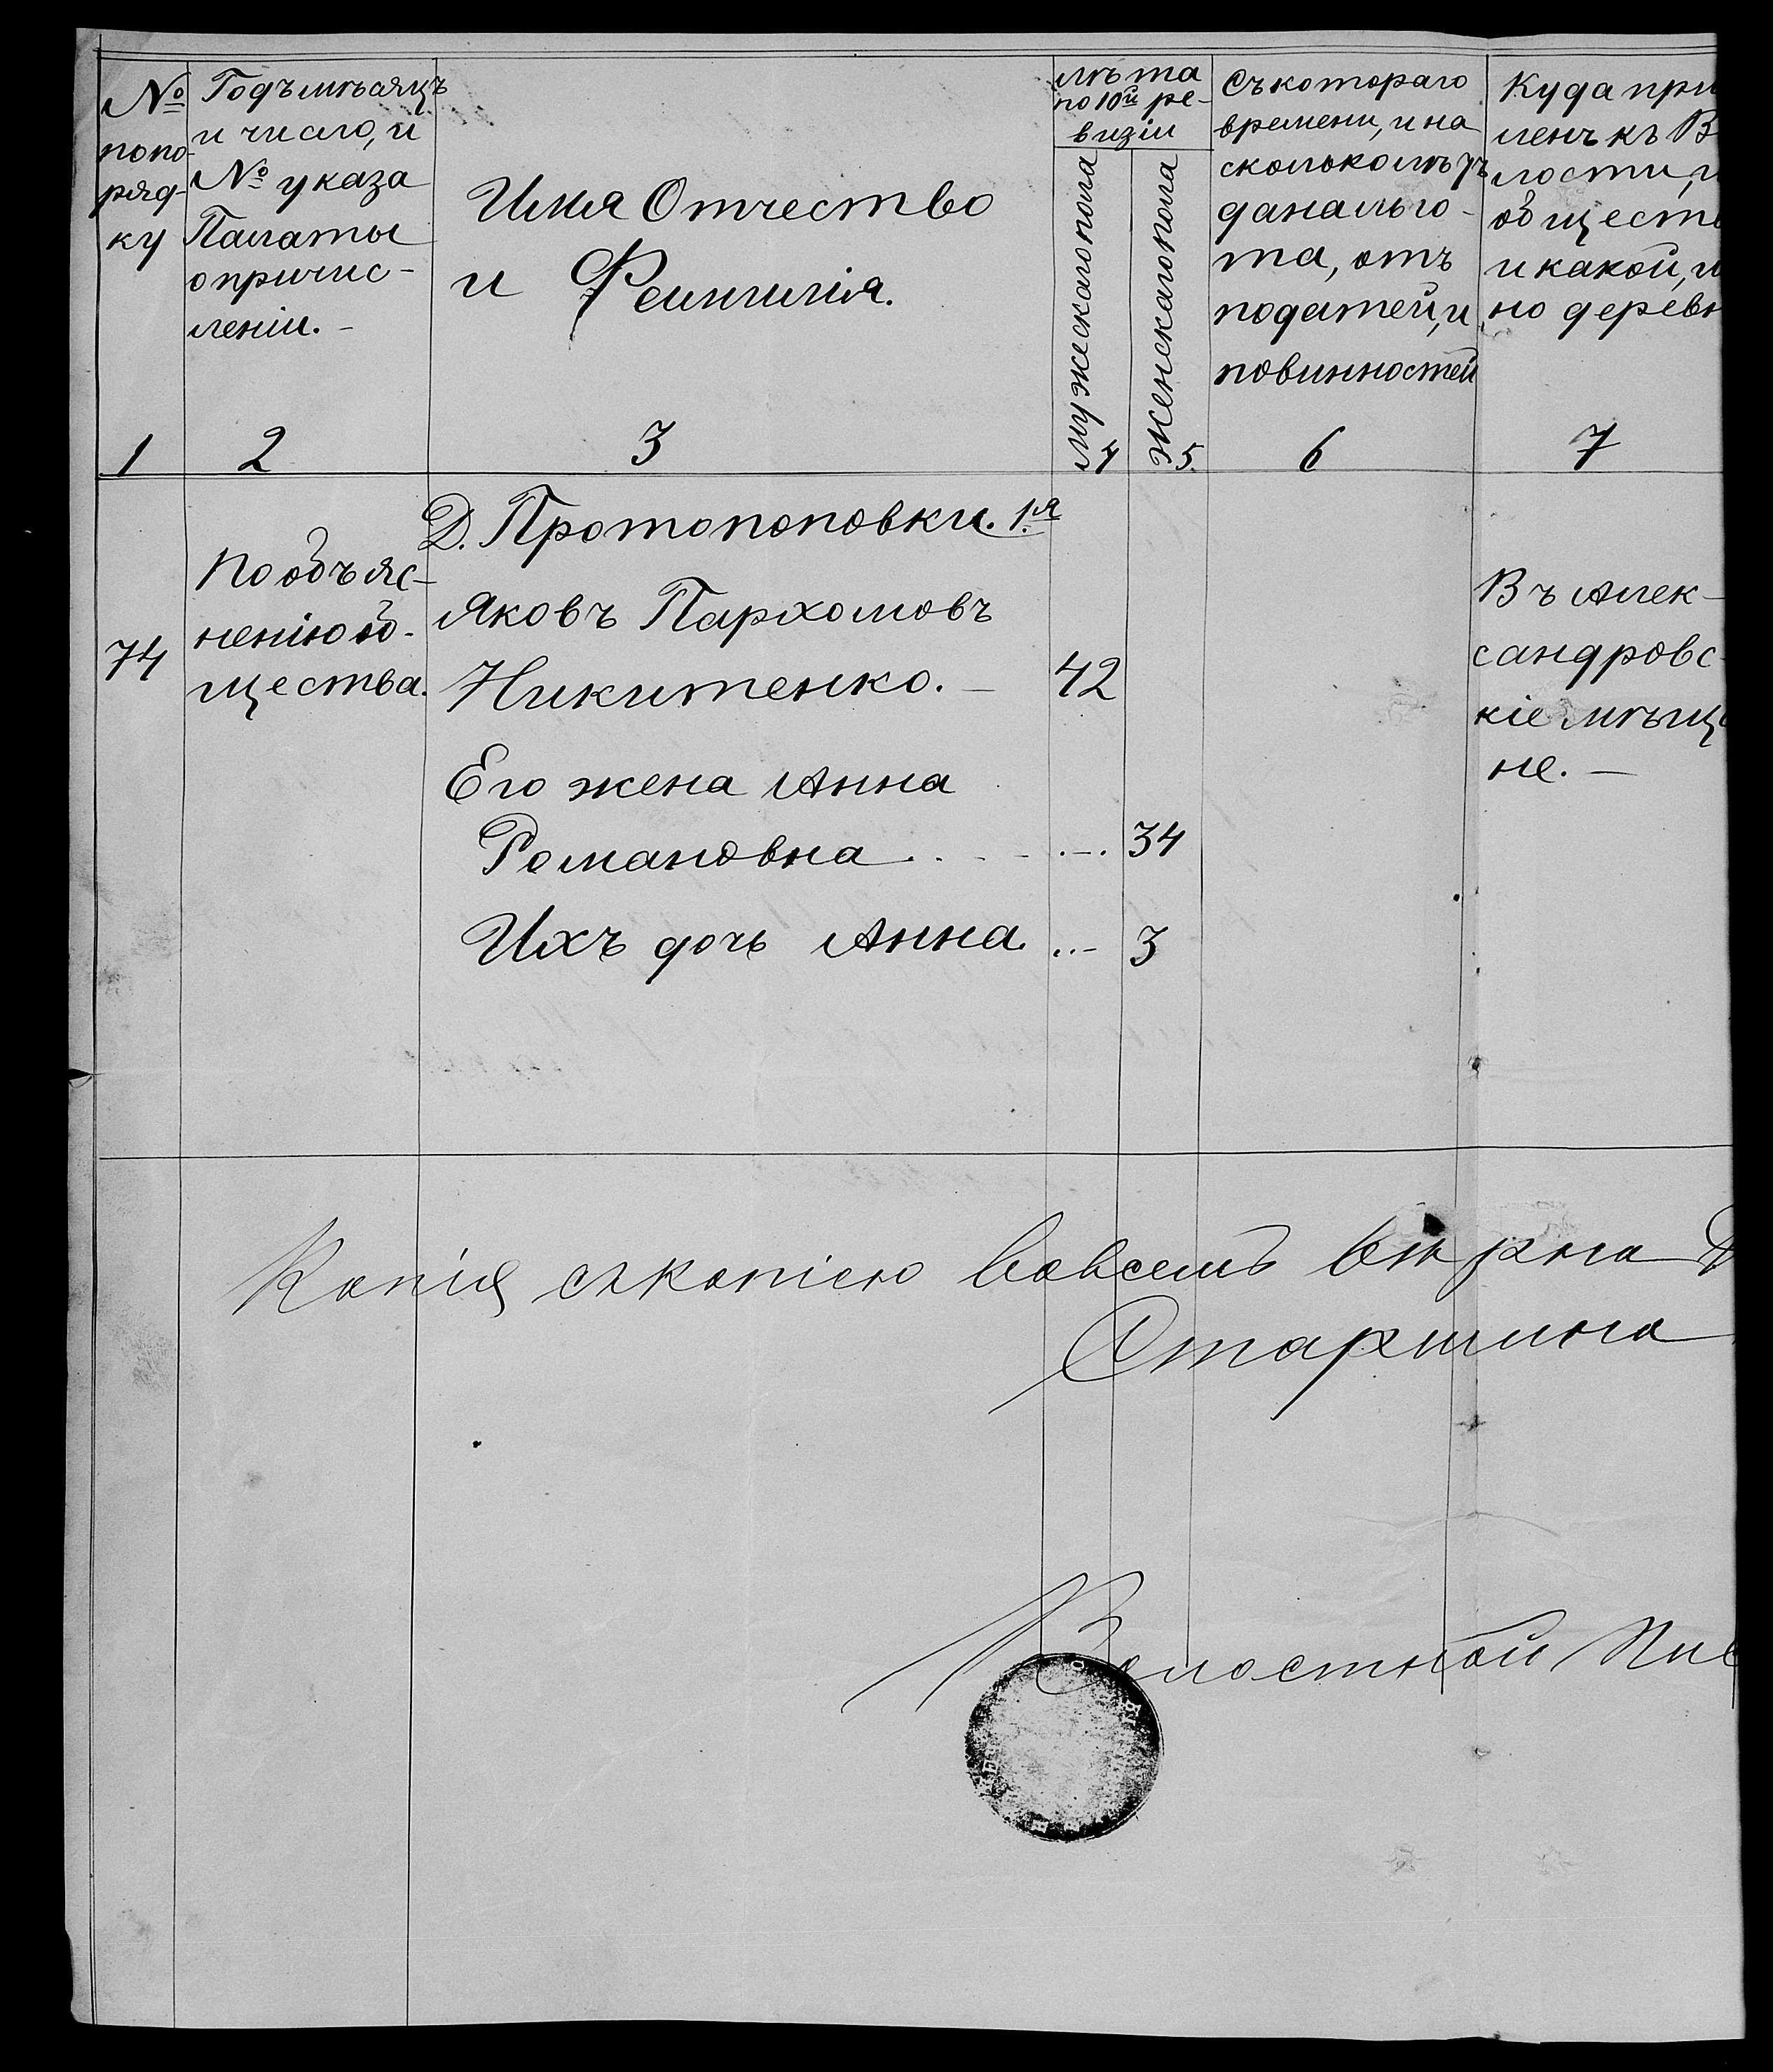 №
попо-
ряд-
ку
Годъ мѣсяцъ
и число, и
№ указа
Палаты
о причис-
леніи. -
Имя Отчество
и Фамилія.
лѣта
по 10й ре-
визіи
мужескаго пола
женскаго пола
Съ котораго
времени, и на
сколько лѣтъ
дана льго-
та, отъ
податей, и
повинностей
Куда при
ленъ къ В
лости, и
общест
и какой, и
но дерев
1 2 3 4 5. 6 7
Д. Протопоповки. 1.я
74
По объяс-
ненію об-
щества.
Яковъ Пархомовъ
Никитенко. - 42
Его жена Анна
Романовна . . - - . -. 34
Ихъ дочь Анна. ..- 3
Въ Алек-
сандровс-
кіе мѣща
не. -
Копія съ копіею вовсемъ вѣрна
Старшина
Волостной Пис